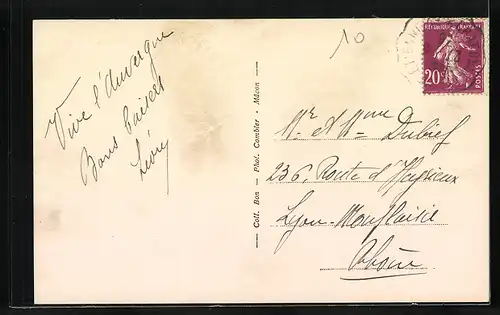 10
RÉPUBLIQUE FRANÇAISE
20c
POSTES
Vive l'Auvergne
Bons baisers
Coll. Bon — Phot. Combier — Mâcon
Mr et Mme Dubief
236, Route d'Heyrieux
Lyon - Monplaisir
Rhône